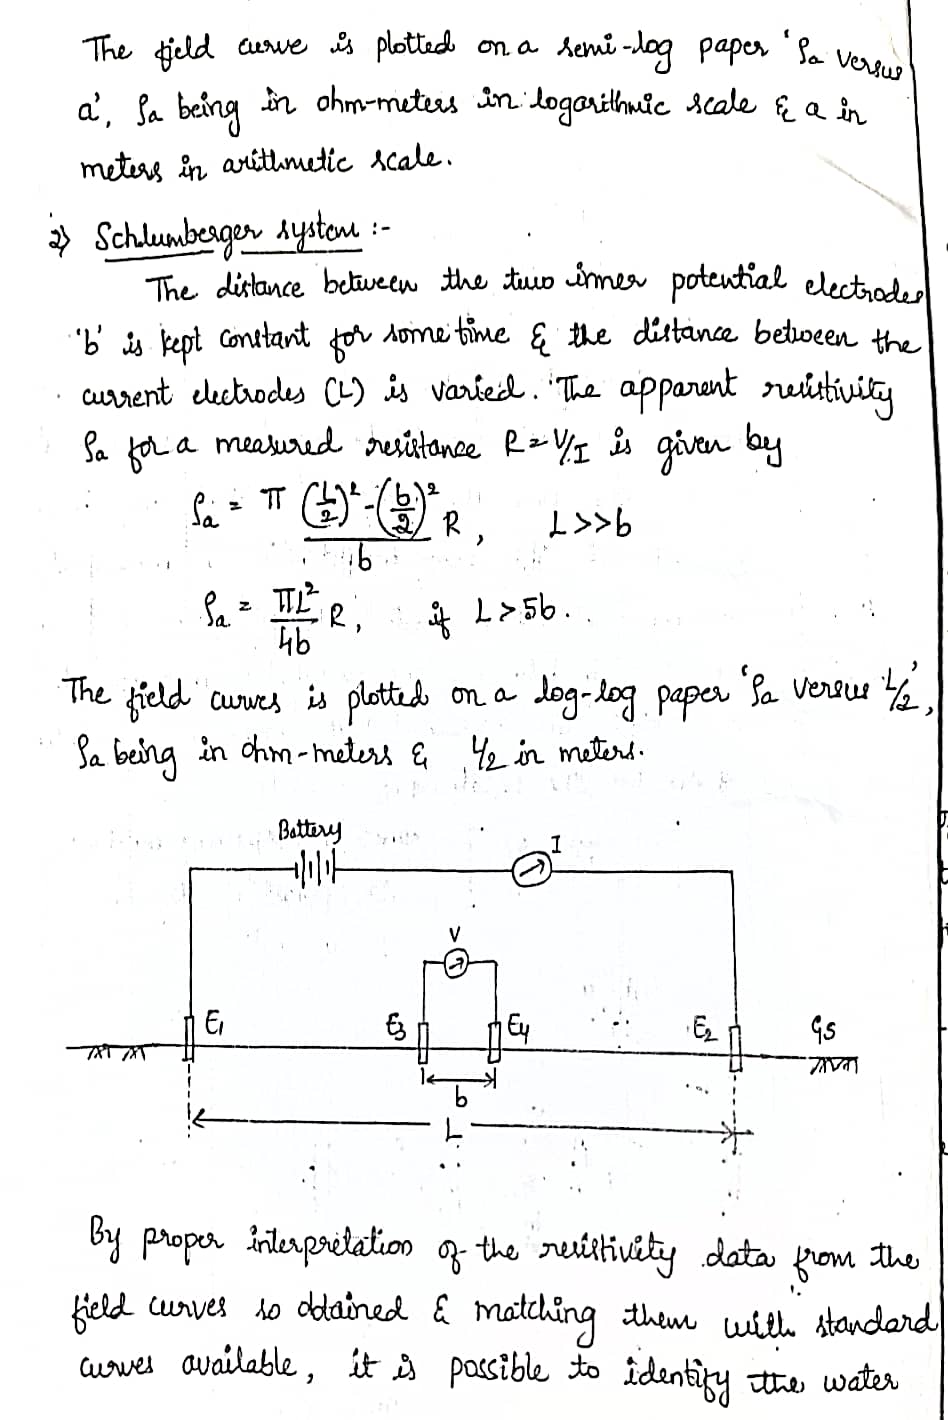 The field curve is plotted on a semi-log paper 'ρa versus
a', ρa being in ohm-meters in logarithmic scale & a in
meters in arithmetic scale.
2) Schlumberger system :-
The distance between the two inner potential electrodes
'b' is kept constant for some time & the distance between the
current electrodes (L) is varied. The apparent resistivity
ρa for a measured resistance R = V/I is given by
ρa = π (L/2)² - (b/2)² / b R, L >> b
ρa = πL²/4b R, if L > 5b.
The field curves is plotted on a log-log paper 'ρa versus L/2',
ρa being in ohm-meters & L/2 in meters.
Battery
I
V
E1 E3 E4 E2 GS
b
L
By proper interpretation of the resistivity data from the
field curves so obtained & matching them with standard
curves available, it is possible to identify the water